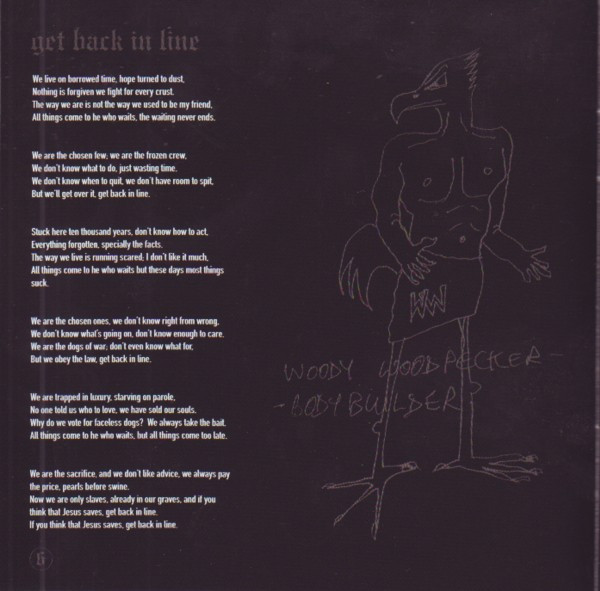 get back in line
We live on borrowed time, hope turned to dust,
Nothing is forgiven we fight for every crust.
The way we are is not the way we used to be my friend,
All things come to he who waits, the waiting never ends.
We are the chosen few; we are the frozen crew,
We don't know what to do, just wasting time.
We don't know when to quit, we don't have room to spit,
But we'll get over it, get back in line.
Stuck here ten thousand years, don't know how to act,
Everything forgotten, specially the facts.
The way we live is running scared; I don't like it much,
All things come to he who waits but these days most things
suck.
We are the chosen ones, we don't know right from wrong,
We don't know what's going on, don't know enough to care.
We are the dogs of war; don't even know what for,
But we obey the law, get back in line.
We are trapped in luxury, starving on parole,
No one told us who to love, we have sold our souls.
Why do we vote for faceless dogs? We always take the bait.
All things come to he who waits, but all things come too late.
We are the sacrifice, and we don't like advice, we always pay
the price, pearls before swine.
Now we are only slaves, already in our graves, and if you
think that Jesus saves, get back in line.
If you think that Jesus saves, get back in line.
WW
WOODY WOODPECKER -
- BODYBUILDER?
6